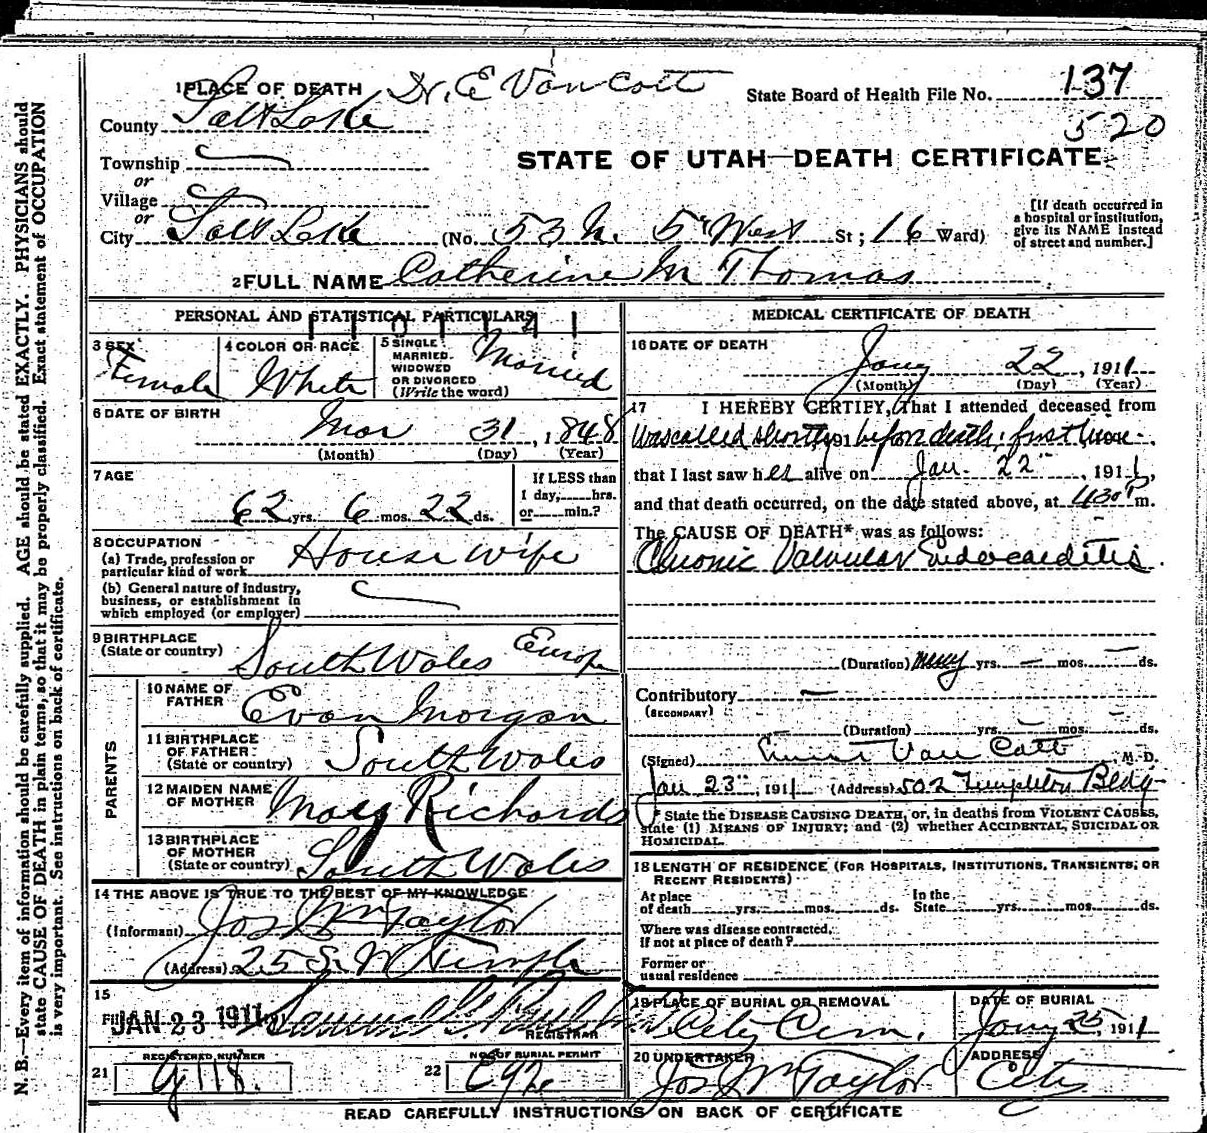 1 PLACE OF DEATH Dr. E Van Cott
State Board of Health File No. 137
520
County Salt Lake
STATE OF UTAH—DEATH CERTIFICATE
Township
or
Village
or
City Salt Lake (No. 53 N. 5 West St; 16 Ward)
[If death occurred in a hospital or institution, give its NAME instead of street and number.]
2 FULL NAME Catherine M Thomas
PERSONAL AND STATISTICAL PARTICULARS
3 SEX Female
4 COLOR OR RACE White
5 SINGLE MARRIED. WIDOWED OR DIVORCED (Write the word) Married
6 DATE OF BIRTH
Mar 31, 1848
(Month) (Day) (Year)
7 AGE
62 yrs. 6 mos. 22 ds.
If LESS than 1 day, hrs. or min.?
8 OCCUPATION
(a) Trade, profession or particular kind of work House Wife
(b) General nature of industry, business, or establishment in which employed (or employer)
9 BIRTHPLACE (State or country) South Wales Europe
PARENTS
10 NAME OF FATHER Evan Morgan
11 BIRTHPLACE OF FATHER (State or country) South Wales
12 MAIDEN NAME OF MOTHER Mary Richards
13 BIRTHPLACE OF MOTHER (State or country) South Wales
14 THE ABOVE IS TRUE TO THE BEST OF MY KNOWLEDGE
(Informant) Jos Wm Taylor
(Address) 25 S. W Temple
15
JAN 23 1911
REGISTRAR
REGISTERED NUMBER
21
NO. OF BURIAL PERMIT
22
MEDICAL CERTIFICATE OF DEATH
16 DATE OF DEATH
Jany 22, 1911
(Month) (Day) (Year)
17 I HEREBY CERTIFY, That I attended deceased from
Was called shortly 191 before death: first time
that I last saw her alive on Jan. 22", 1911,
and that death occurred, on the date stated above, at 430 P m.
The CAUSE OF DEATH* was as follows:
Chronic Valvular Endocarditis
(Duration) many yrs. — mos. — ds.
Contributory —
(SECONDARY)
(Duration) yrs. — mos. — ds.
(Signed) Ernest Van Cott, M. D.
Jan 23", 1911 (Address) 502 Templeton Bldg
* State the DISEASE CAUSING DEATH, or, in deaths from VIOLENT CAUSES, state (1) MEANS OF INJURY; and (2) whether ACCIDENTAL, SUICIDAL OR HOMICIDAL.
18 LENGTH OF RESIDENCE (FOR HOSPITALS, INSTITUTIONS, TRANSIENTS, OR RECENT RESIDENTS)
At place of death yrs. mos. ds. In the State yrs. mos. ds.
Where was disease contracted, if not at place of death?
Former or usual residence
19 PLACE OF BURIAL OR REMOVAL
City Cem.
DATE OF BURIAL
Jany 25, 1911
20 UNDERTAKER
Jos Wm Taylor
ADDRESS
City
READ CAREFULLY INSTRUCTIONS ON BACK OF CERTIFICATE
N. B.—Every item of information should be carefully supplied. AGE should be stated EXACTLY. PHYSICIANS should
state CAUSE OF DEATH in plain terms, so that it may be properly classified. Exact statement of OCCUPATION
is very important. See instructions on back of certificate.